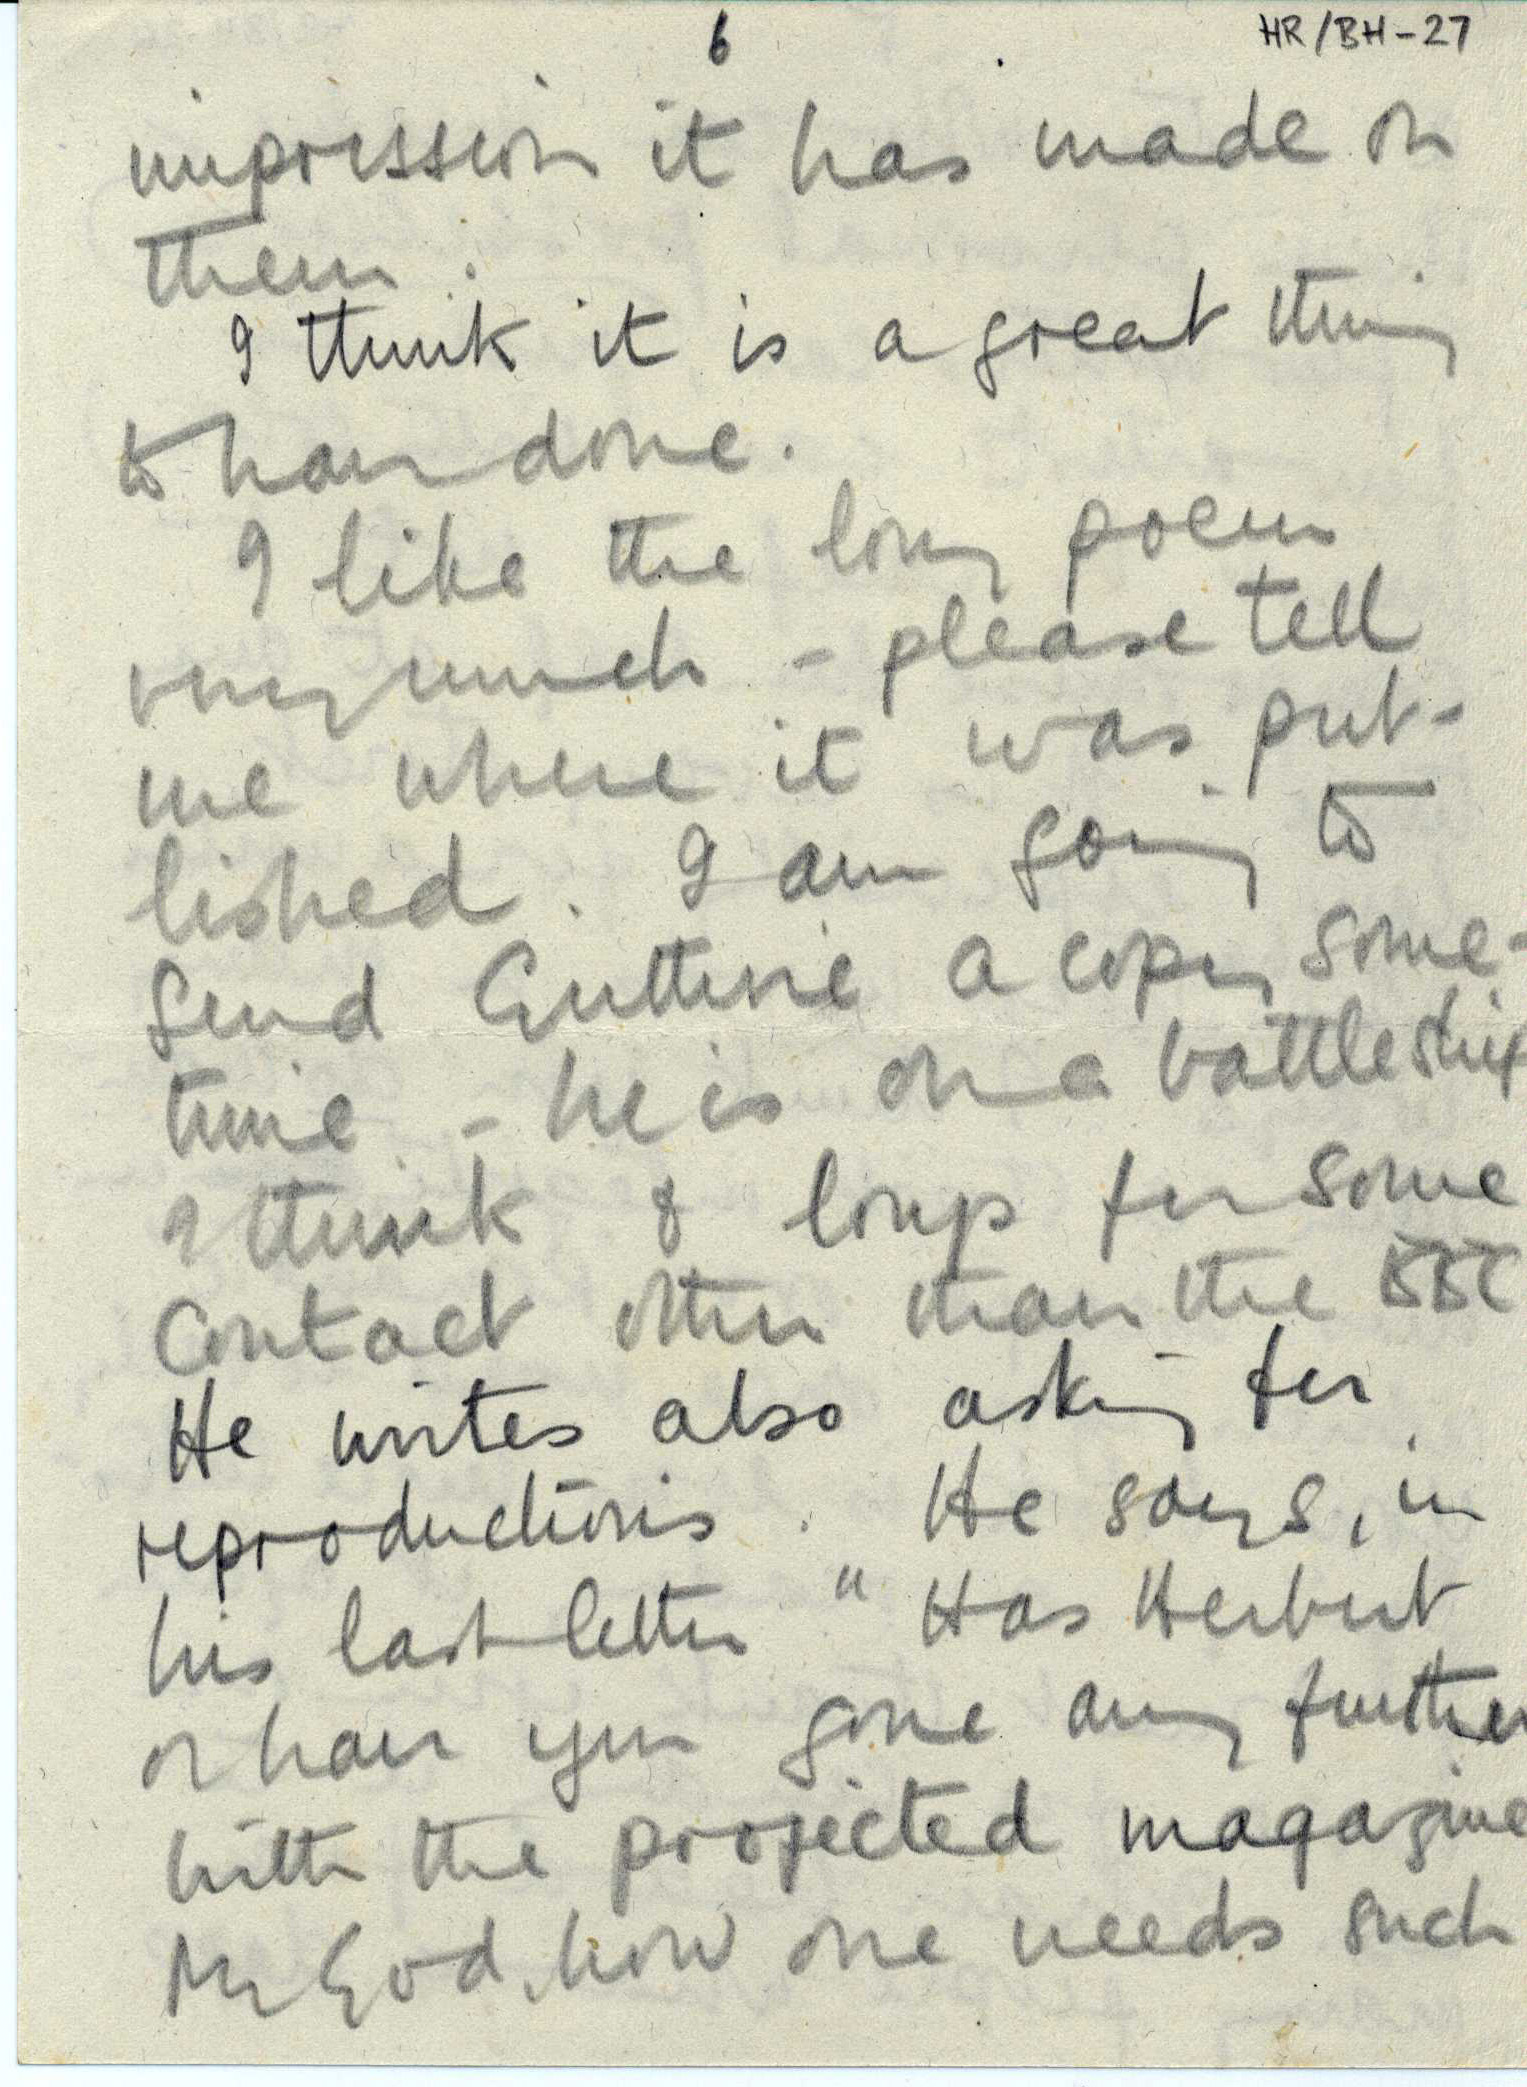 6
HR/BH-27
impression it has made on
them.
I think it is a great thing
to have done.
I like the long poem
very much - please tell
me where it was pub-
lished. I am going to
send Guthrie a copy some-
time - he is on a battleship
I think & longs for some
contact other than the BBC
He writes also asking for
reproductions. He says, in
his last letter " Has Herbert
or have you gone any further
with the projected magazine
My God, how one needs such